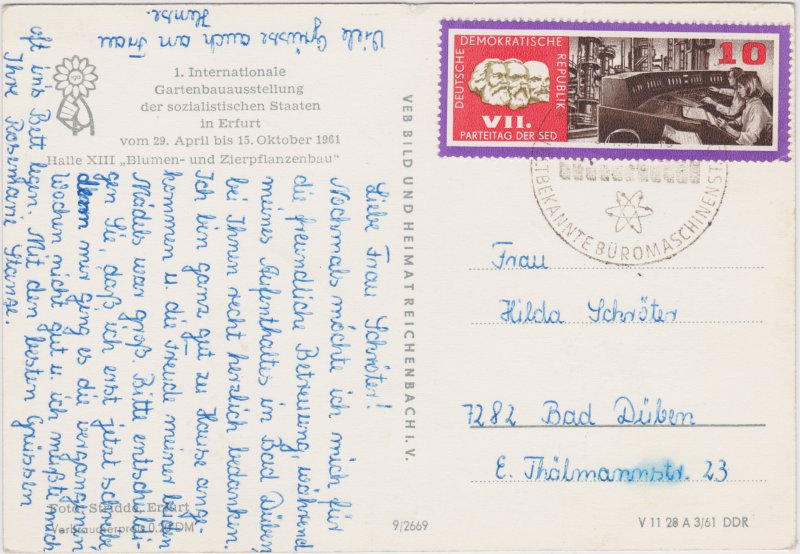 1. Internationale
Gartenbauausstellung
der sozialistischen Staaten
in Erfurt
vom 29. April bis 15. Oktober 1961
Halle XIII „Blumen- und Zierpflanzenbau"
Liebe Frau Schröter!
Nochmals möchte ich mich für
die freundliche Betreuung, während
meines Aufenthaltes in Bad Düben,
bei Ihnen recht herzlich bedanken.
Ich bin ganz gut zu Hause ange-
kommen u. die Freude meiner
Mädels war groß. Bitte entschuldi-
gen Sie, daß ich erst jetzt schreibe,
denn mir ging es die vergangenen
Wochen nicht gut u. ich mußte mich
oft in's Bett legen. Mit den besten Grüssen
Ihre Rosemarie Stange.
Viele Grüsse auch an Frau
Foto: Erfurt
Verbraucherpreis DM
VEB BILD UND HEIMAT REICHENBACH I. V.
9/2669
DEUTSCHE DEMOKRATISCHE REPUBLIK
10
VII.
PARTEITAG DER SED
BÜROMASCHINEN
Frau
Hilda Schröter
7282 Bad Düben
E. Thälmannstr. 23
V 11 28 A 3/61 DDR